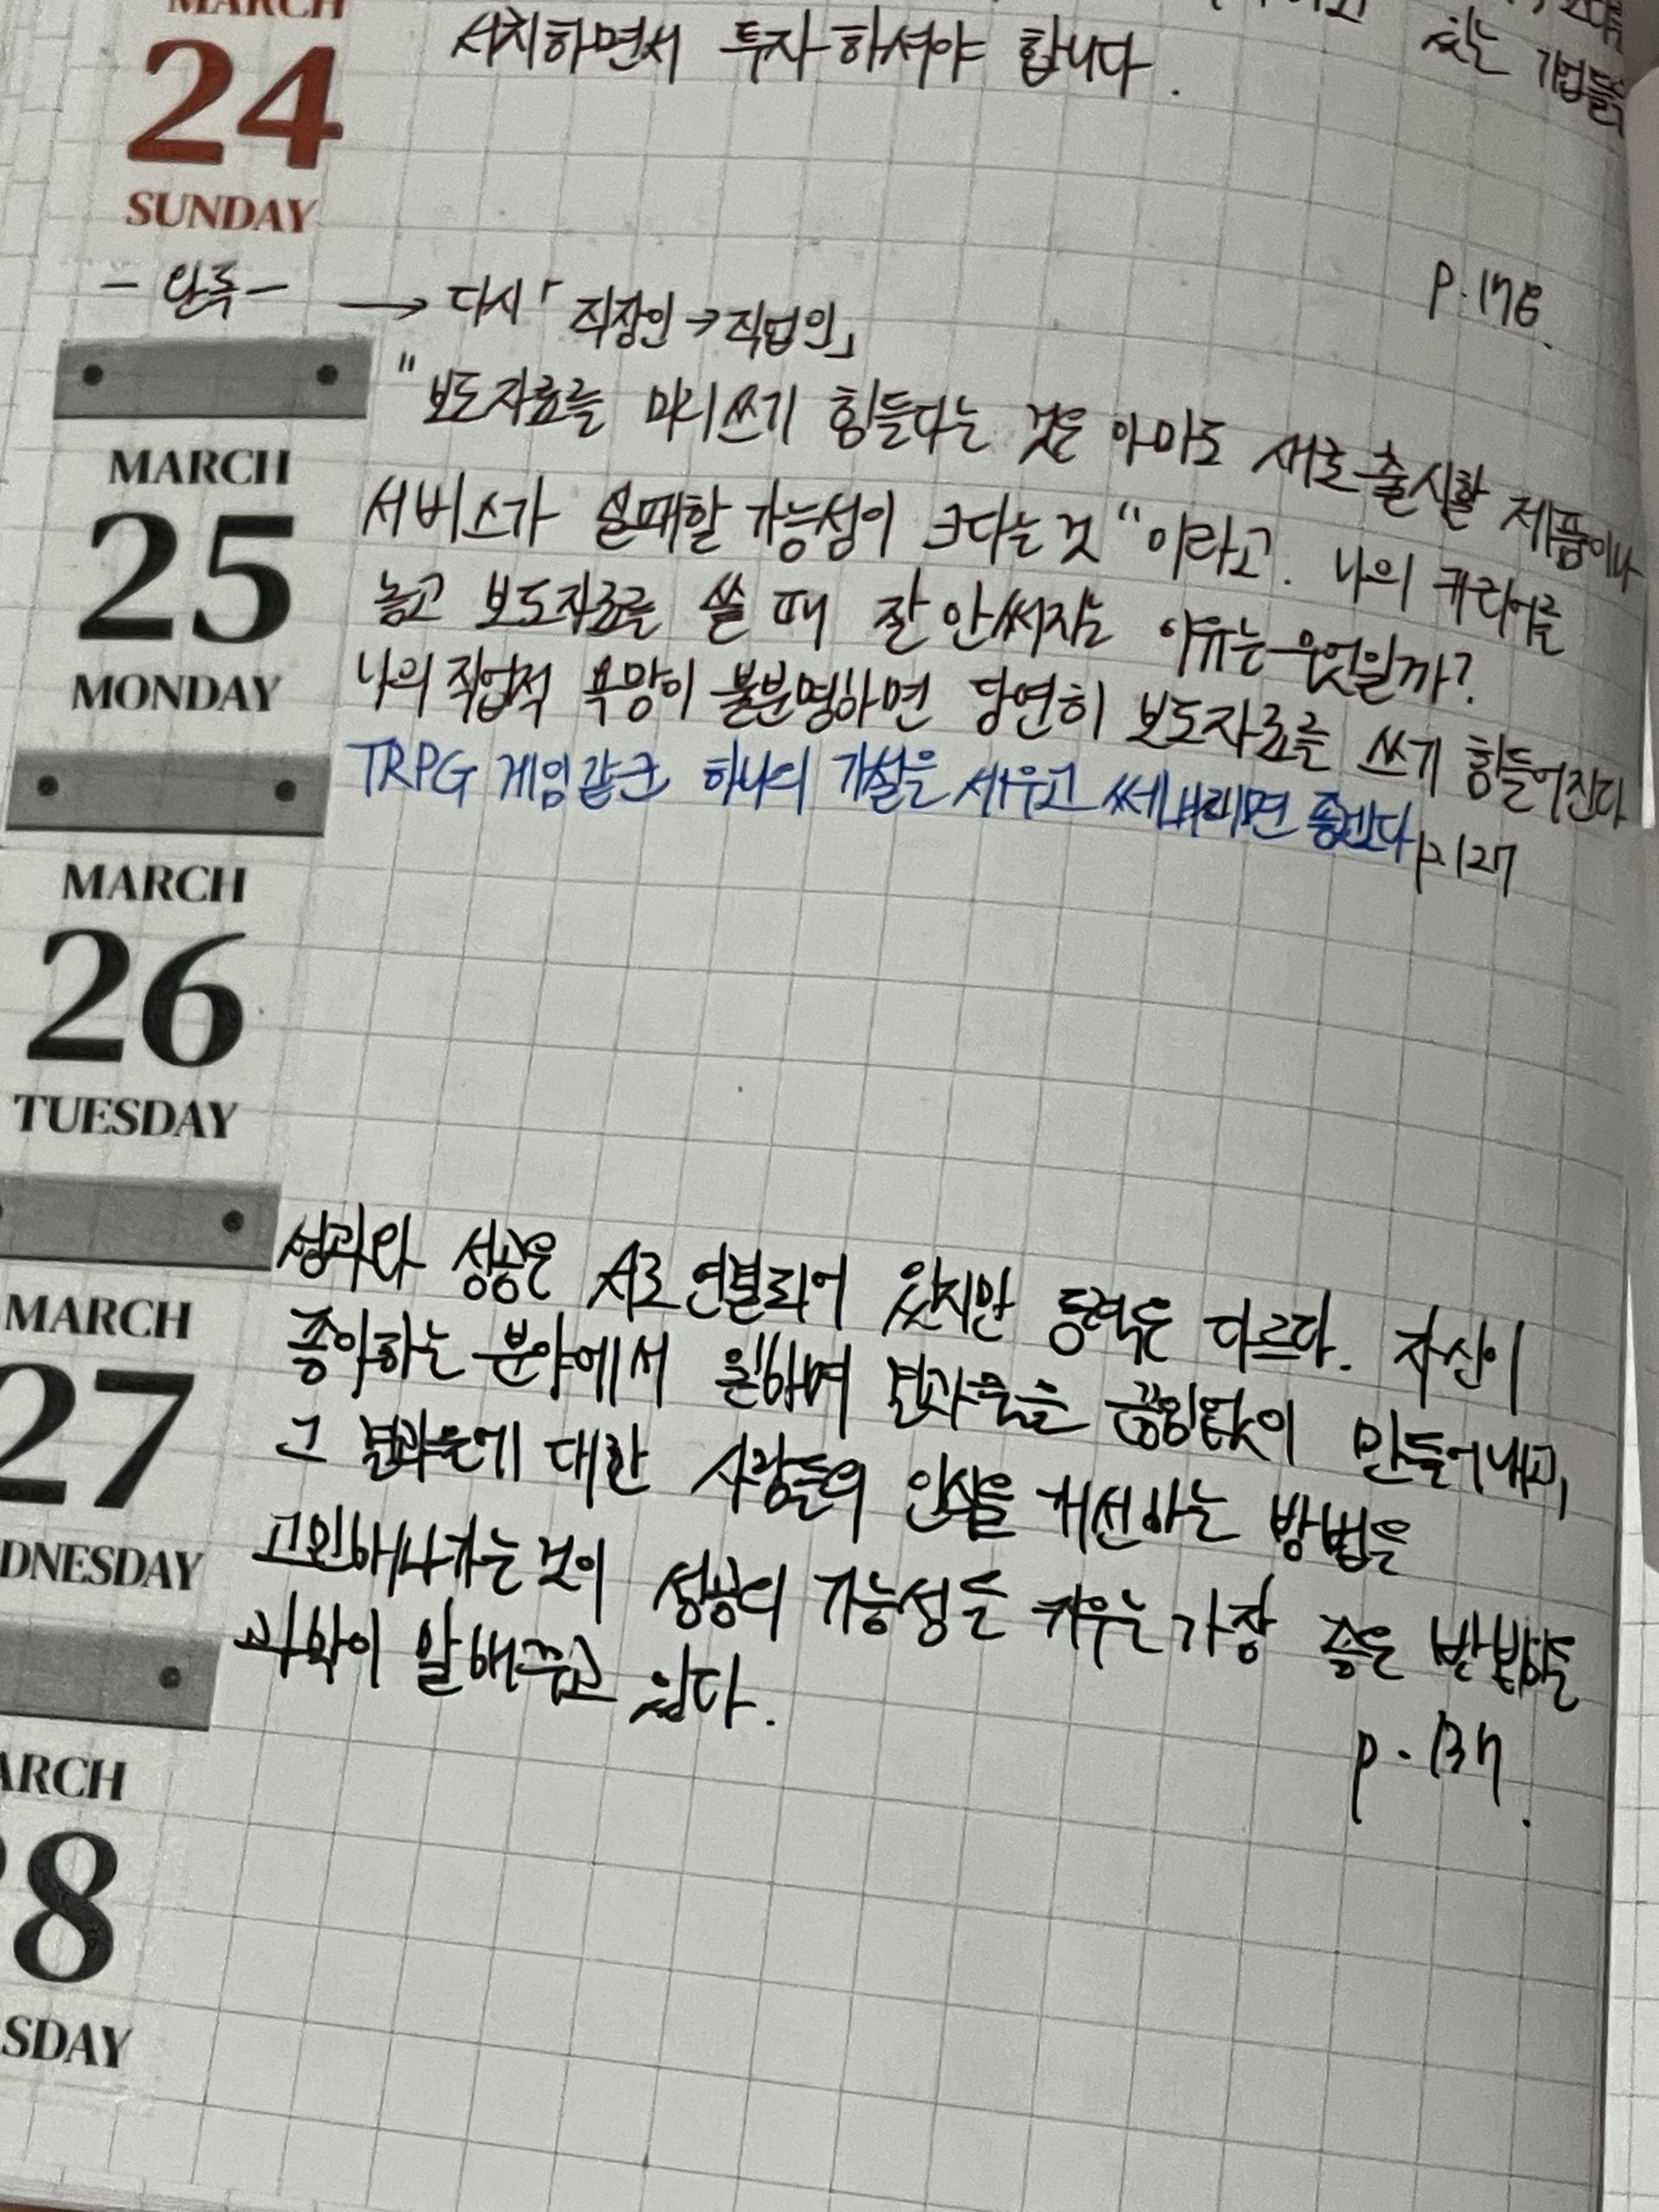 있는 기법들
MARCH
24
SUNDAY
서치하면서 투자하셔야 합니다.
p.178.
- 완투 - → 다시 「직장인→직업인」
MARCH
25
MONDAY
"보도자료를 미리 쓰기 힘들다는 것은 아마도 새로 출시할 제품이나
서비스가 실패할 가능성이 크다는 것"이라고. 나의 커리어를
놓고 보도자료를 쓸 때 잘 안써지는 이유는 무엇일까?
나의 직업적 욕망이 불분명하면 당연히 보도자료를 쓰기 힘들어진다
TRPG 게임같은 하나의 가설을 세우고 써내려 보면 좋겠다 p.127
MARCH
26
TUESDAY
MARCH
27
DNESDAY
성과와 성공은 서로 연결되어 있지만 동력은 다르다. 자신이
좋아하는 분야에서 일하며 결과물을 끊임없이 만들어내고,
그 결과물에 대한 사람들의 인식을 개선하는 방법을
고민해나가는 것이 성공의 가능성을 키우는 가장 좋은 방법임을
과학이 말해주고 있다.
p.137.
ARCH
8
SDAY